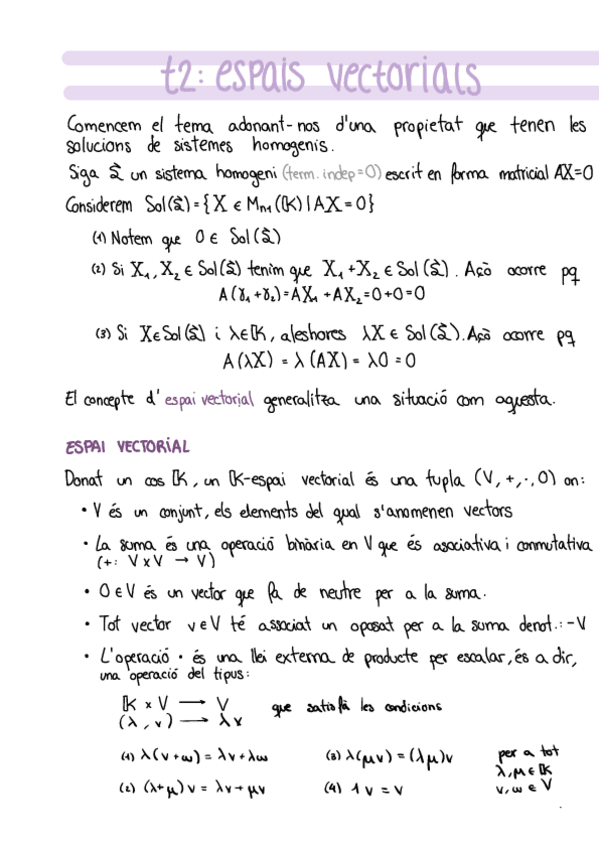 t2: espais vectorials
Comencem el tema adonant-nos d'una propietat que tenen les
solucions de sistemes homogenis.
Siga Ŝ un sistema homogeni (term. indep=0) escrit en forma matricial AX=0
Considerem Sol(Ŝ)={X ∈ Mₙₓ₁(𝕂) | AX=0}
(1) Notem que 0 ∈ Sol(Ŝ)
(2) Si X₁, X₂ ∈ Sol(Ŝ) tenim que X₁+X₂ ∈ Sol(Ŝ). Açò ocorre pq
A(X₁+X₂)=AX₁+AX₂=0+0=0
(3) Si X∈Sol(Ŝ) i λ∈𝕂, aleshores λX ∈ Sol(Ŝ). Açò ocorre pq
A(λX) = λ(AX) = λ0 = 0
El concepte d'espai vectorial generalitza una situació com aquesta.
ESPAI VECTORIAL
Donat un cos 𝕂, un 𝕂-espai vectorial és una tupla (V, +, ·, 0) on:
• V és un conjunt, els elements del qual s'anomenen vectors
• La suma és una operació binària en V que és asociativa i conmutativa
(+: V x V → V)
• 0 ∈ V és un vector que fa de neutre per a la suma.
• Tot vector v ∈ V té associat un oposat per a la suma denot.: -V
• L'operació · és una llei externa de producte per escalar, és a dir,
una operació del tipus:
𝕂 x V → V que satisfà les condicions
(λ, v) → λv
(1) λ(v+ω) = λv+λω (3) λ(μv) = (λμ)v per a tot
λ, μ ∈ 𝕂
(2) (λ+μ)v = λv+μv (4) 1v = v v, ω ∈ V